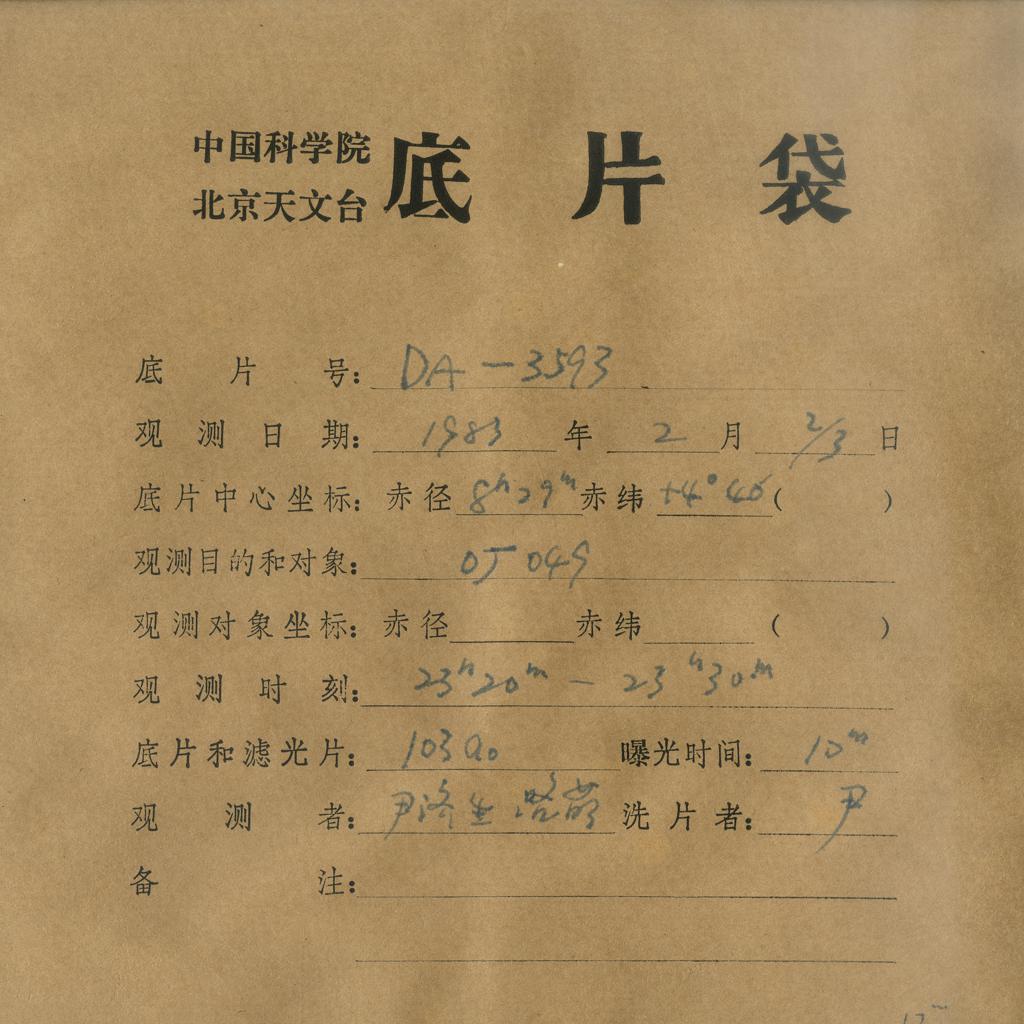 中国科学院
北京天文台
底片袋
底片号：DA-3593
观测日期：1983年2月2/3日
底片中心坐标：赤径8h29m赤纬+4°46（ ）
观测目的和对象：OJ 049
观测对象坐标：赤径 赤纬 （ ）
观测时刻：23h20m - 23h30m
底片和滤光片：103aO 曝光时间：10m
观测者：尹济生 洗片者：尹
备注：